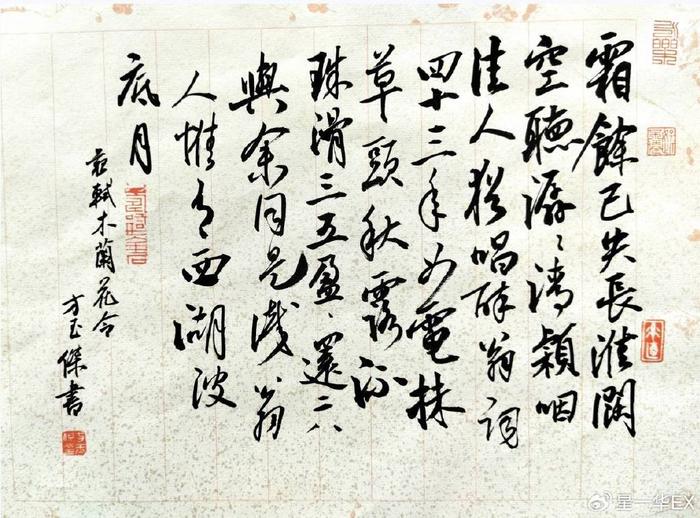 霜餘已失長淮闊
空聽潺〻清潁咽
佳人猶唱醉翁詞
四十三年如電抹
草頭秋露流
珠滑三五盈〻還二八
與余同是識翁
人惟有西湖波
底月
蘇軾木蘭花令
方玉傑書
星一华EX